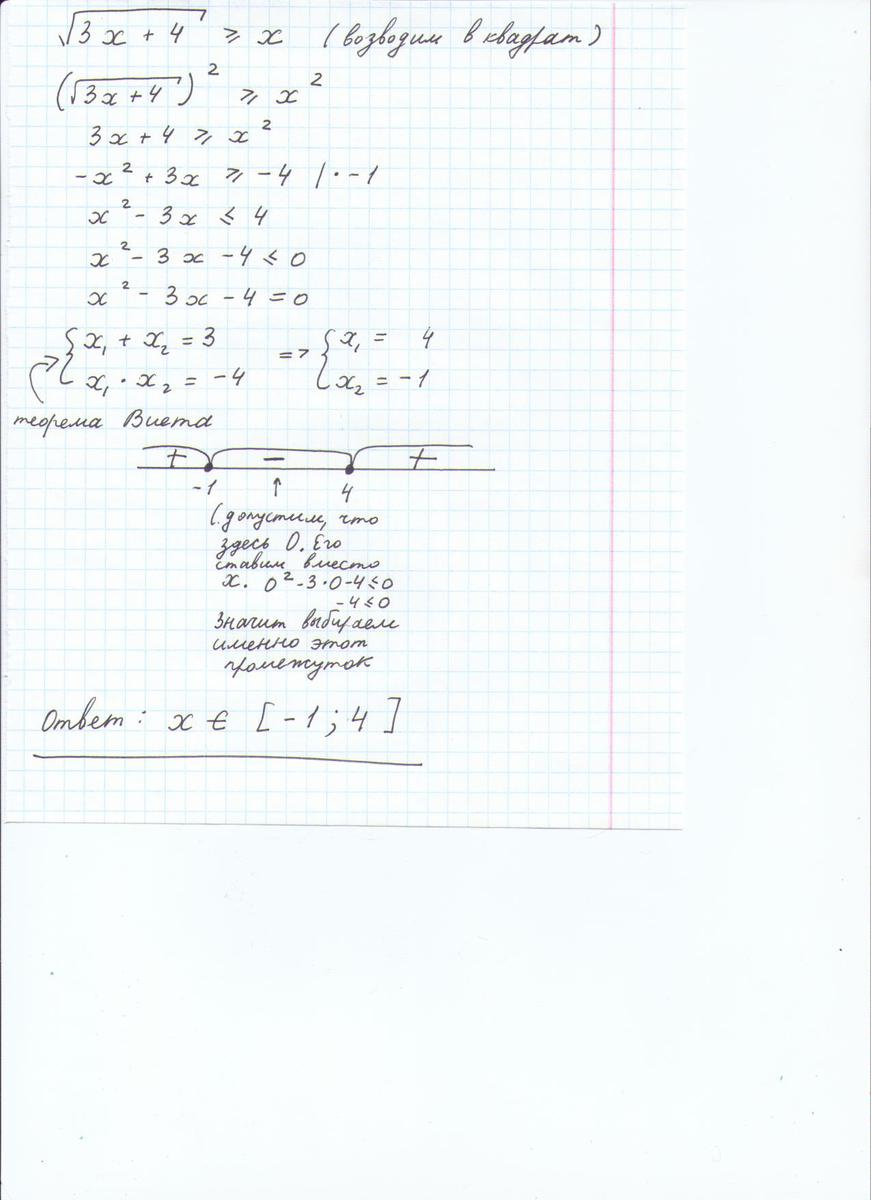 √3x + 4 ⩾ x (возводим в квадрат)
(√3x + 4)² ⩾ x²
3x + 4 ⩾ x²
-x² + 3x ⩾ -4 / · -1
x² - 3x ≤ 4
x² - 3x - 4 ≤ 0
x² - 3x - 4 = 0
{ x₁ + x₂ = 3 => { x₁ = 4
x₁ · x₂ = -4 x₂ = -1
теорема Виета
+ − +
-1 ↑ 4
(допустим, что
здесь 0. Его
ставим вместо
x. 0² - 3·0 - 4 ≤ 0
-4 ≤ 0
Значит выбираем
именно этот
промежуток
Ответ: x ∈ [-1; 4]